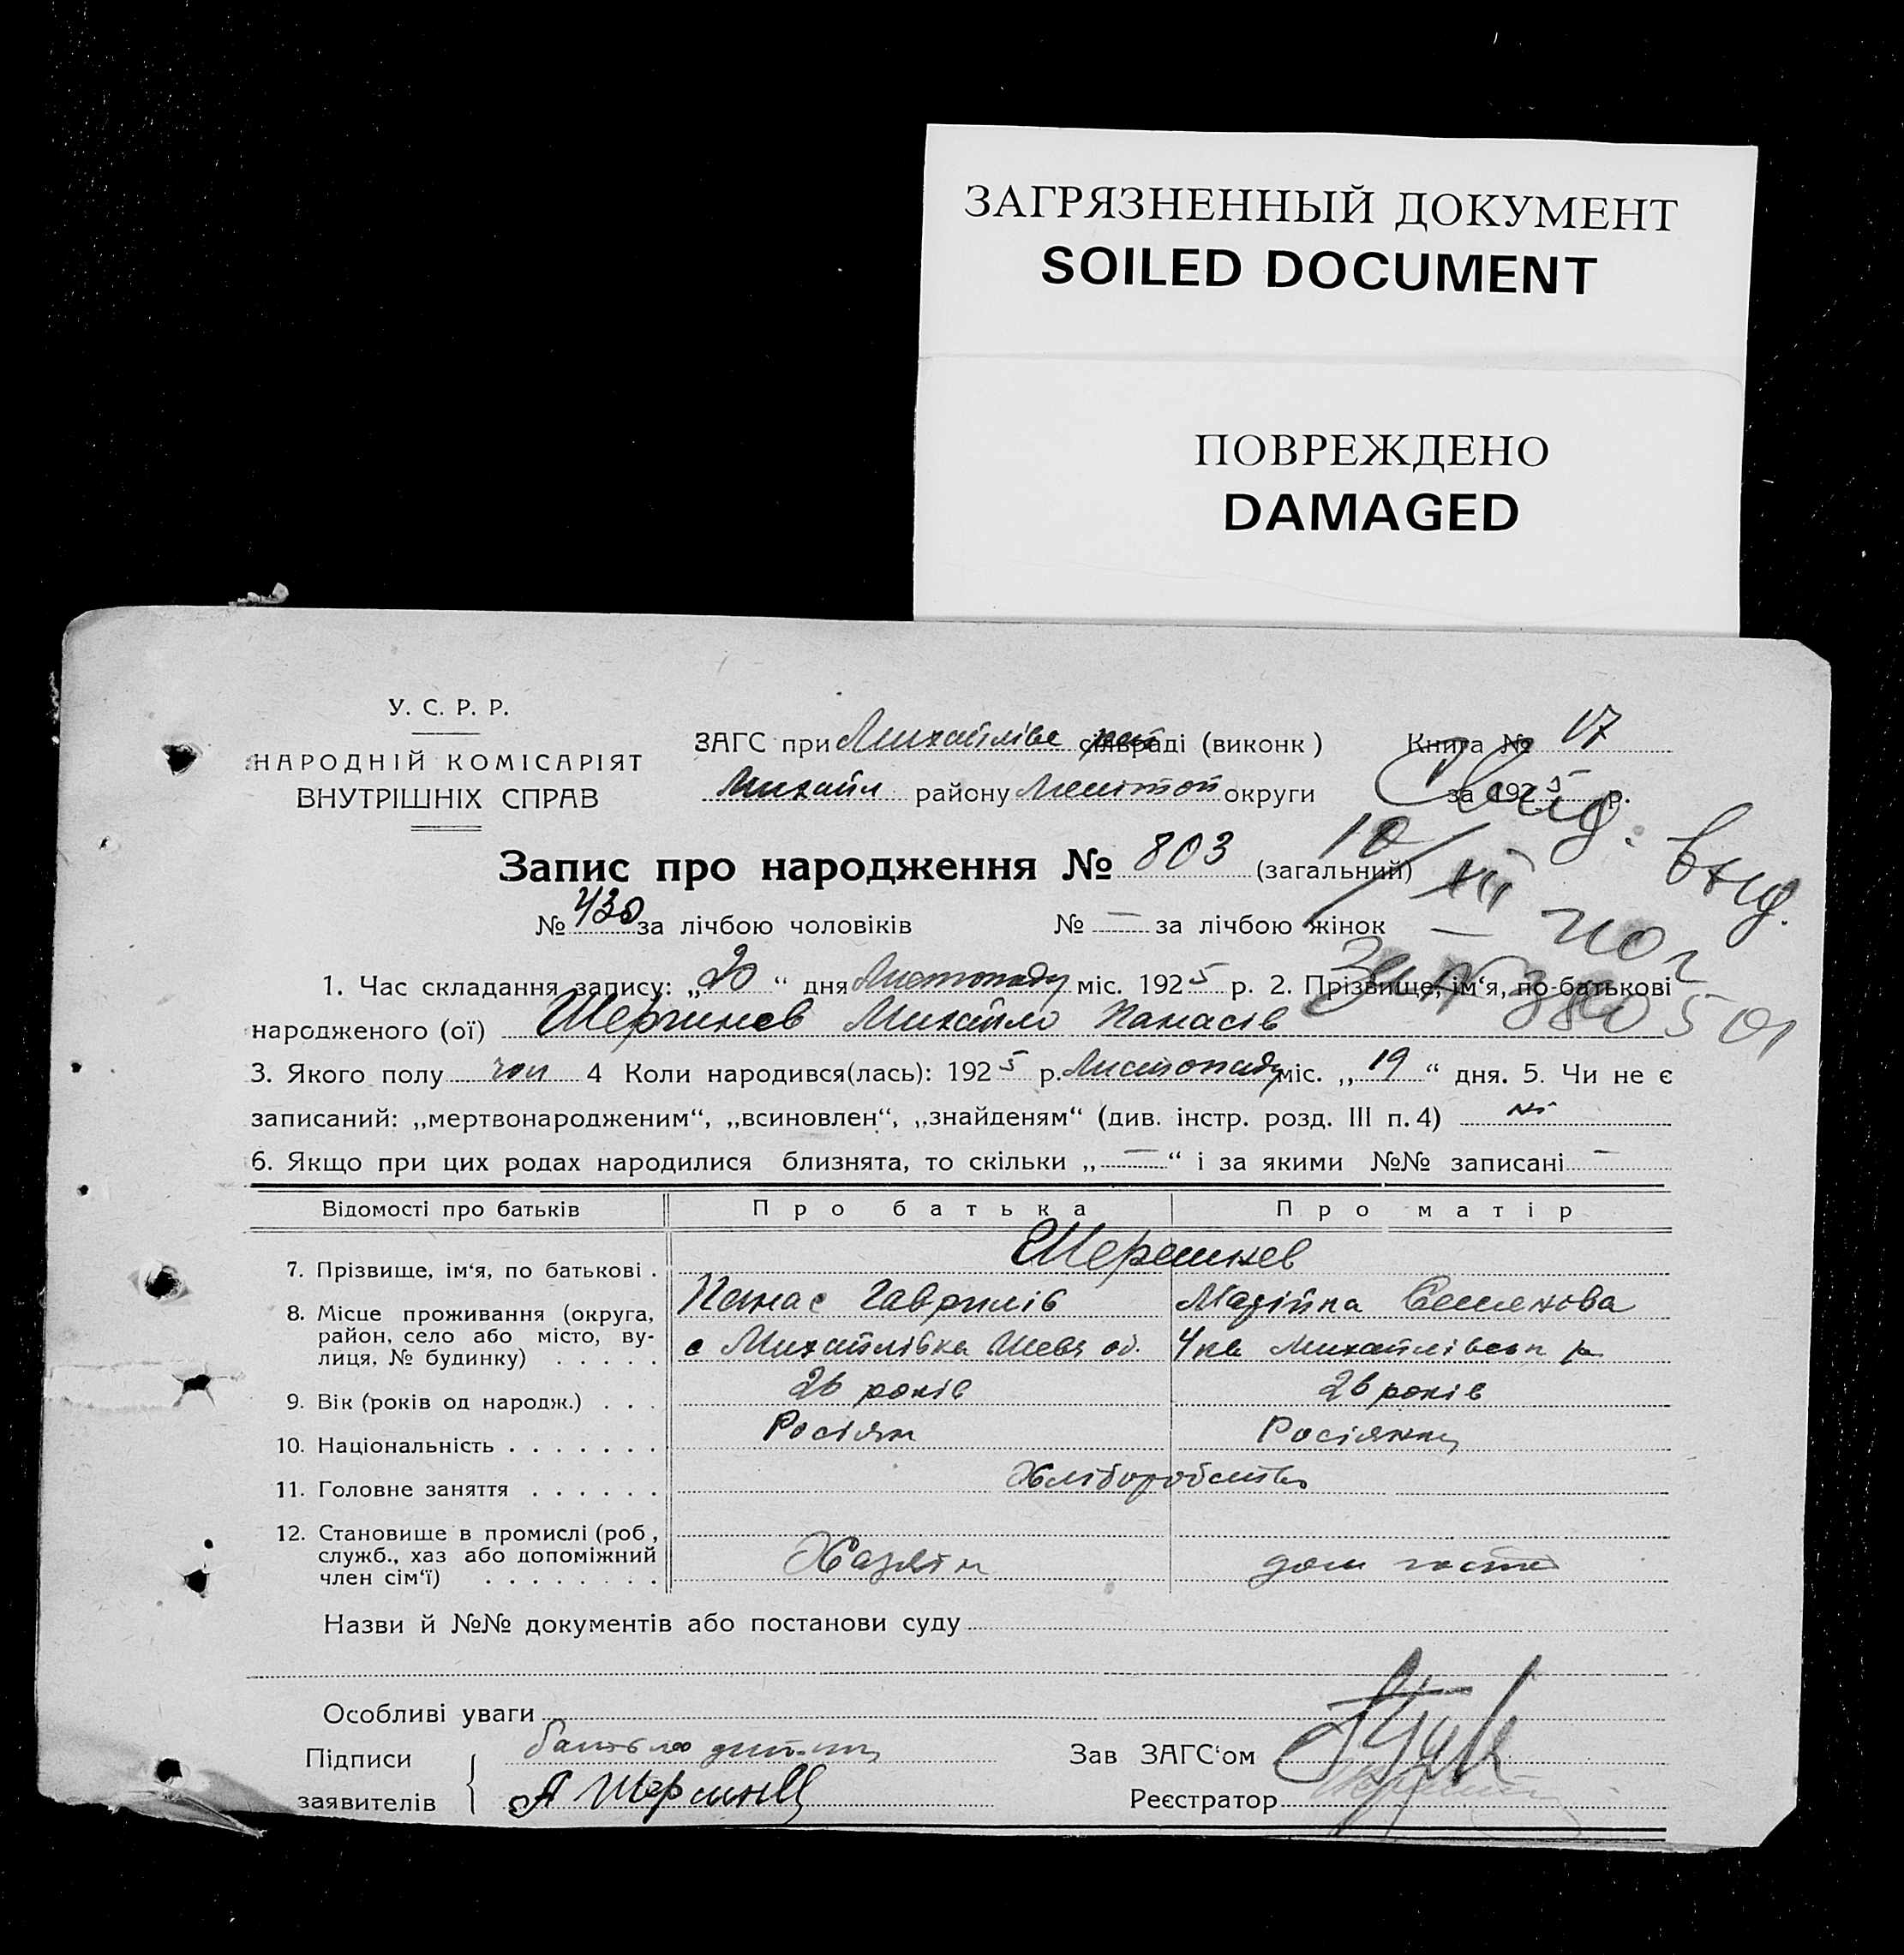 ЗАГРЯЗНЕННЫЙ ДОКУМЕНТ
SOILED DOCUMENT
ПОВРЕЖДЕНО
DAMAGED
У. С. Р. Р.
НАРОДНІЙ КОМІСАРІЯТ
ВНУТРІШНІХ СПРАВ
ЗАГС при Михайлівс сільраді (виконк)
Михайл району Мелітоп округи
Книга № 17
за 1925 р.
Свид. выд.
10/III
Запис про народження № 803 (загальний)
№ 430 за лічбою чоловіків № — за лічбою жінок
1. Час складання запису: „20“ дня Листопаду міс. 1925 р. 2. Прізвище, ім‘я, по-батькові
народженого (ої) Михайло Панасів
3. Якого полу чол 4 Коли народився(лась): 1925 р. Листопаду міс. „19“ дня. 5. Чи не є
записаний: „мертвонародженим“, „всиновлен“, „знайденям“ (див. інстр. розд. III п. 4) ні
6. Якщо при цих родах народилися близнята, то скільки „—“ і за якими №№ записані —
Відомості про батьків Про батька Про матір
7. Прізвище, ім‘я, по батькові .
Панас Гаврилів Марійка Семенова
8. Місце проживання (округа,
район, село або місто, ву-
лиця, № будинку) . . . . .
с Михайлівка
9. Вік (років од народж.) . . . 26 років 26 років
10. Національність . . . . . . . Росіян Росіянка
11. Головне заняття . . . . . . Хліборобство
12. Становище в промислі (роб,
служб., хаз або допоміжний
член сім‘ї) . . . . . . . .
Хазяїн дом госпо
Назви й №№ документів або постанови суду
Особливі уваги
Підписи
заявителів
Зав ЗАГС‘ом
Реєстратор